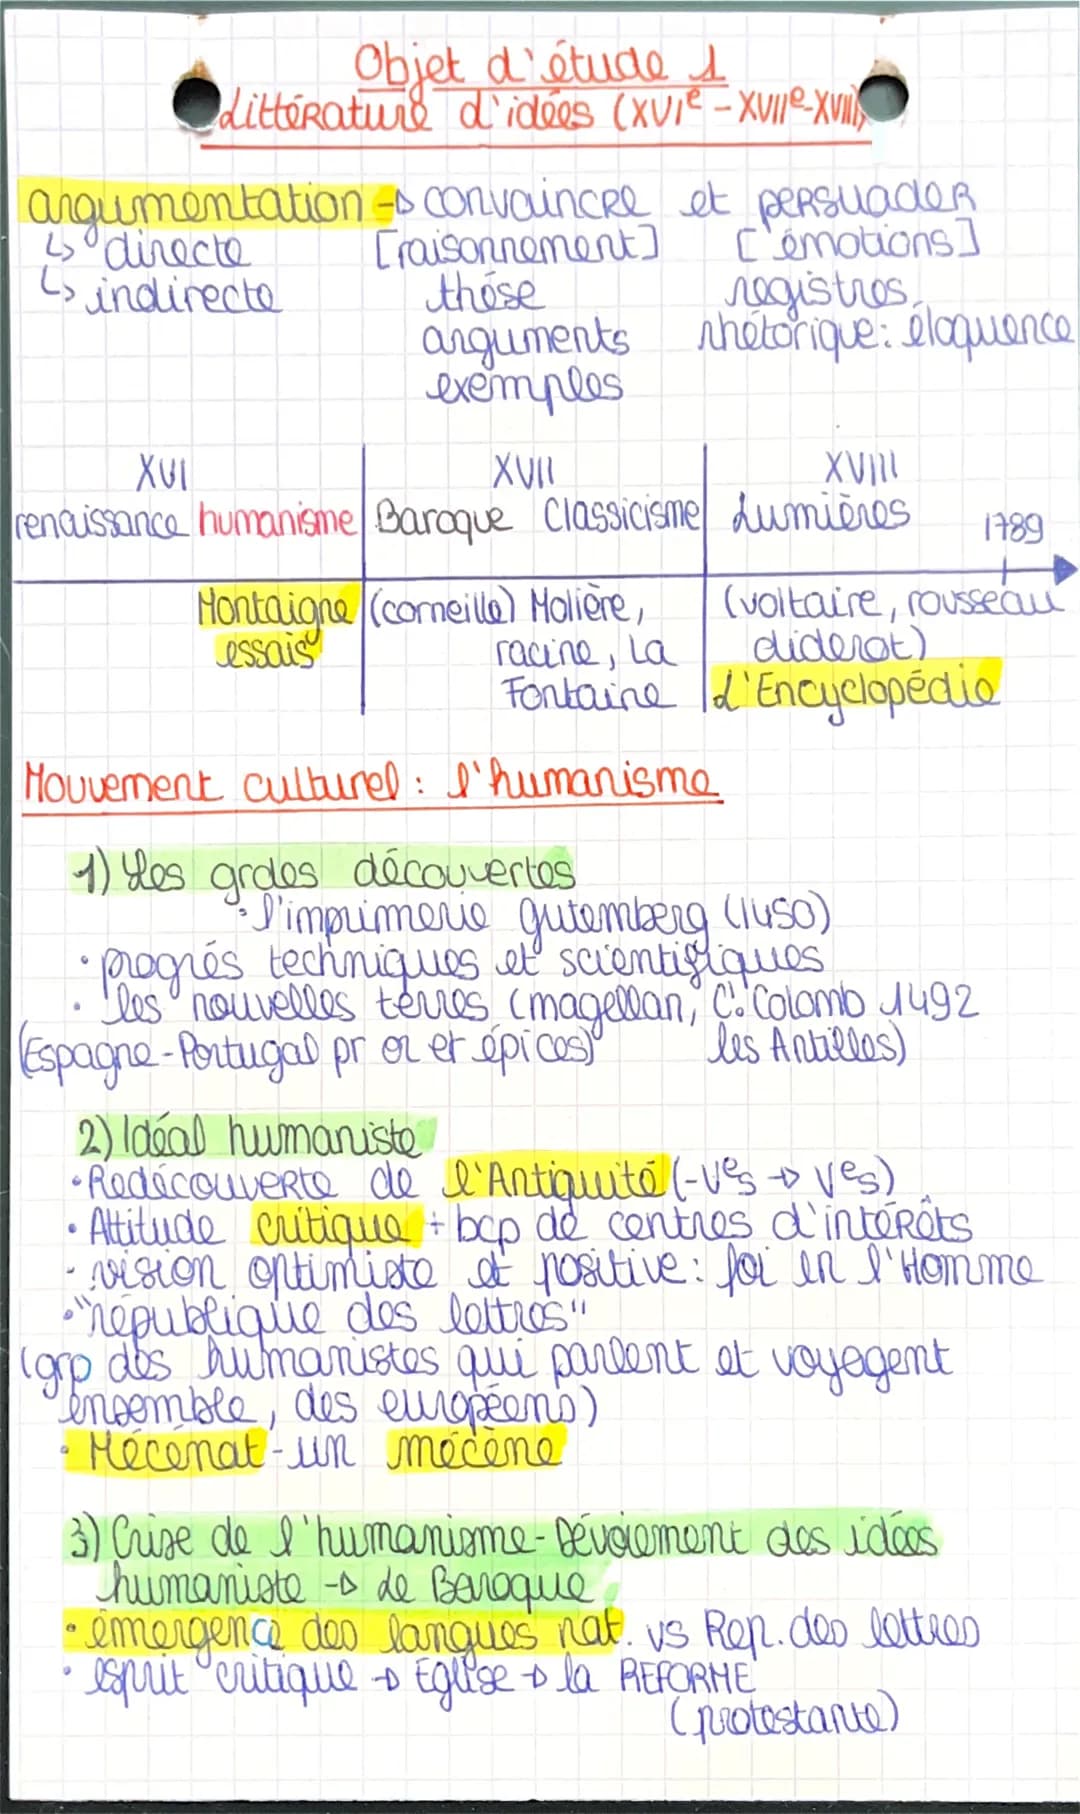 Objet d'étude 1
Littérature d'idées (XVIe - XVIIe-XVIII)
argumentation → convaincre et persuader
↳ directe [raisonnement] [émotions]
↳ indirecte thèse registres,
arguments rhétorique: éloquence
exemples
XVI XVII XVIII
renaissance humanisme Baroque Classicisme Lumières 1789
Montaigne (corneille) Molière, (voltaire, rousseau
essais racine, La diderot)
Fontaine L'Encyclopédie
Mouvement culturel : l'humanisme
1) Les grdes découvertes
• l'imprimerie gutemberg (1450)
• progrés techniques et scientifiques
• les nouvelles terres (magellan, C. Colomb 1492
(Espagne - Portugal pr or et épices) les Antilles)
2) Idéal humaniste
• Redécouverte de l'Antiquité (-Ves → Ves)
• Attitude critique + bcp de centres d'intérêts
• vision optimiste et positive : foi en l'Homme
• "république des lettres"
(grp des humanistes qui parlent et voyagent
ensemble, des européens)
• Mécénat - un mécène
3) Crise de l'humanisme - Dévoiement des idées
humaniste → le Baroque
• émergence des langues nat. vs Rep. des lettres
• esprit critique → Eglise → la REFORME
(protestante)